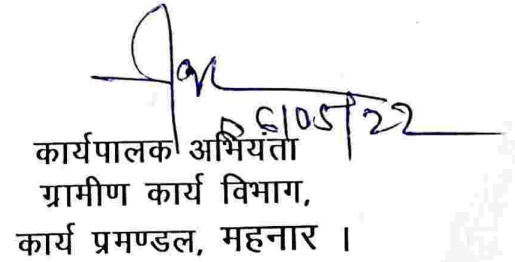 06/05/22
कार्यपालक अभियंता
ग्रामीण कार्य विभाग,
कार्य प्रमण्डल, महनार ।